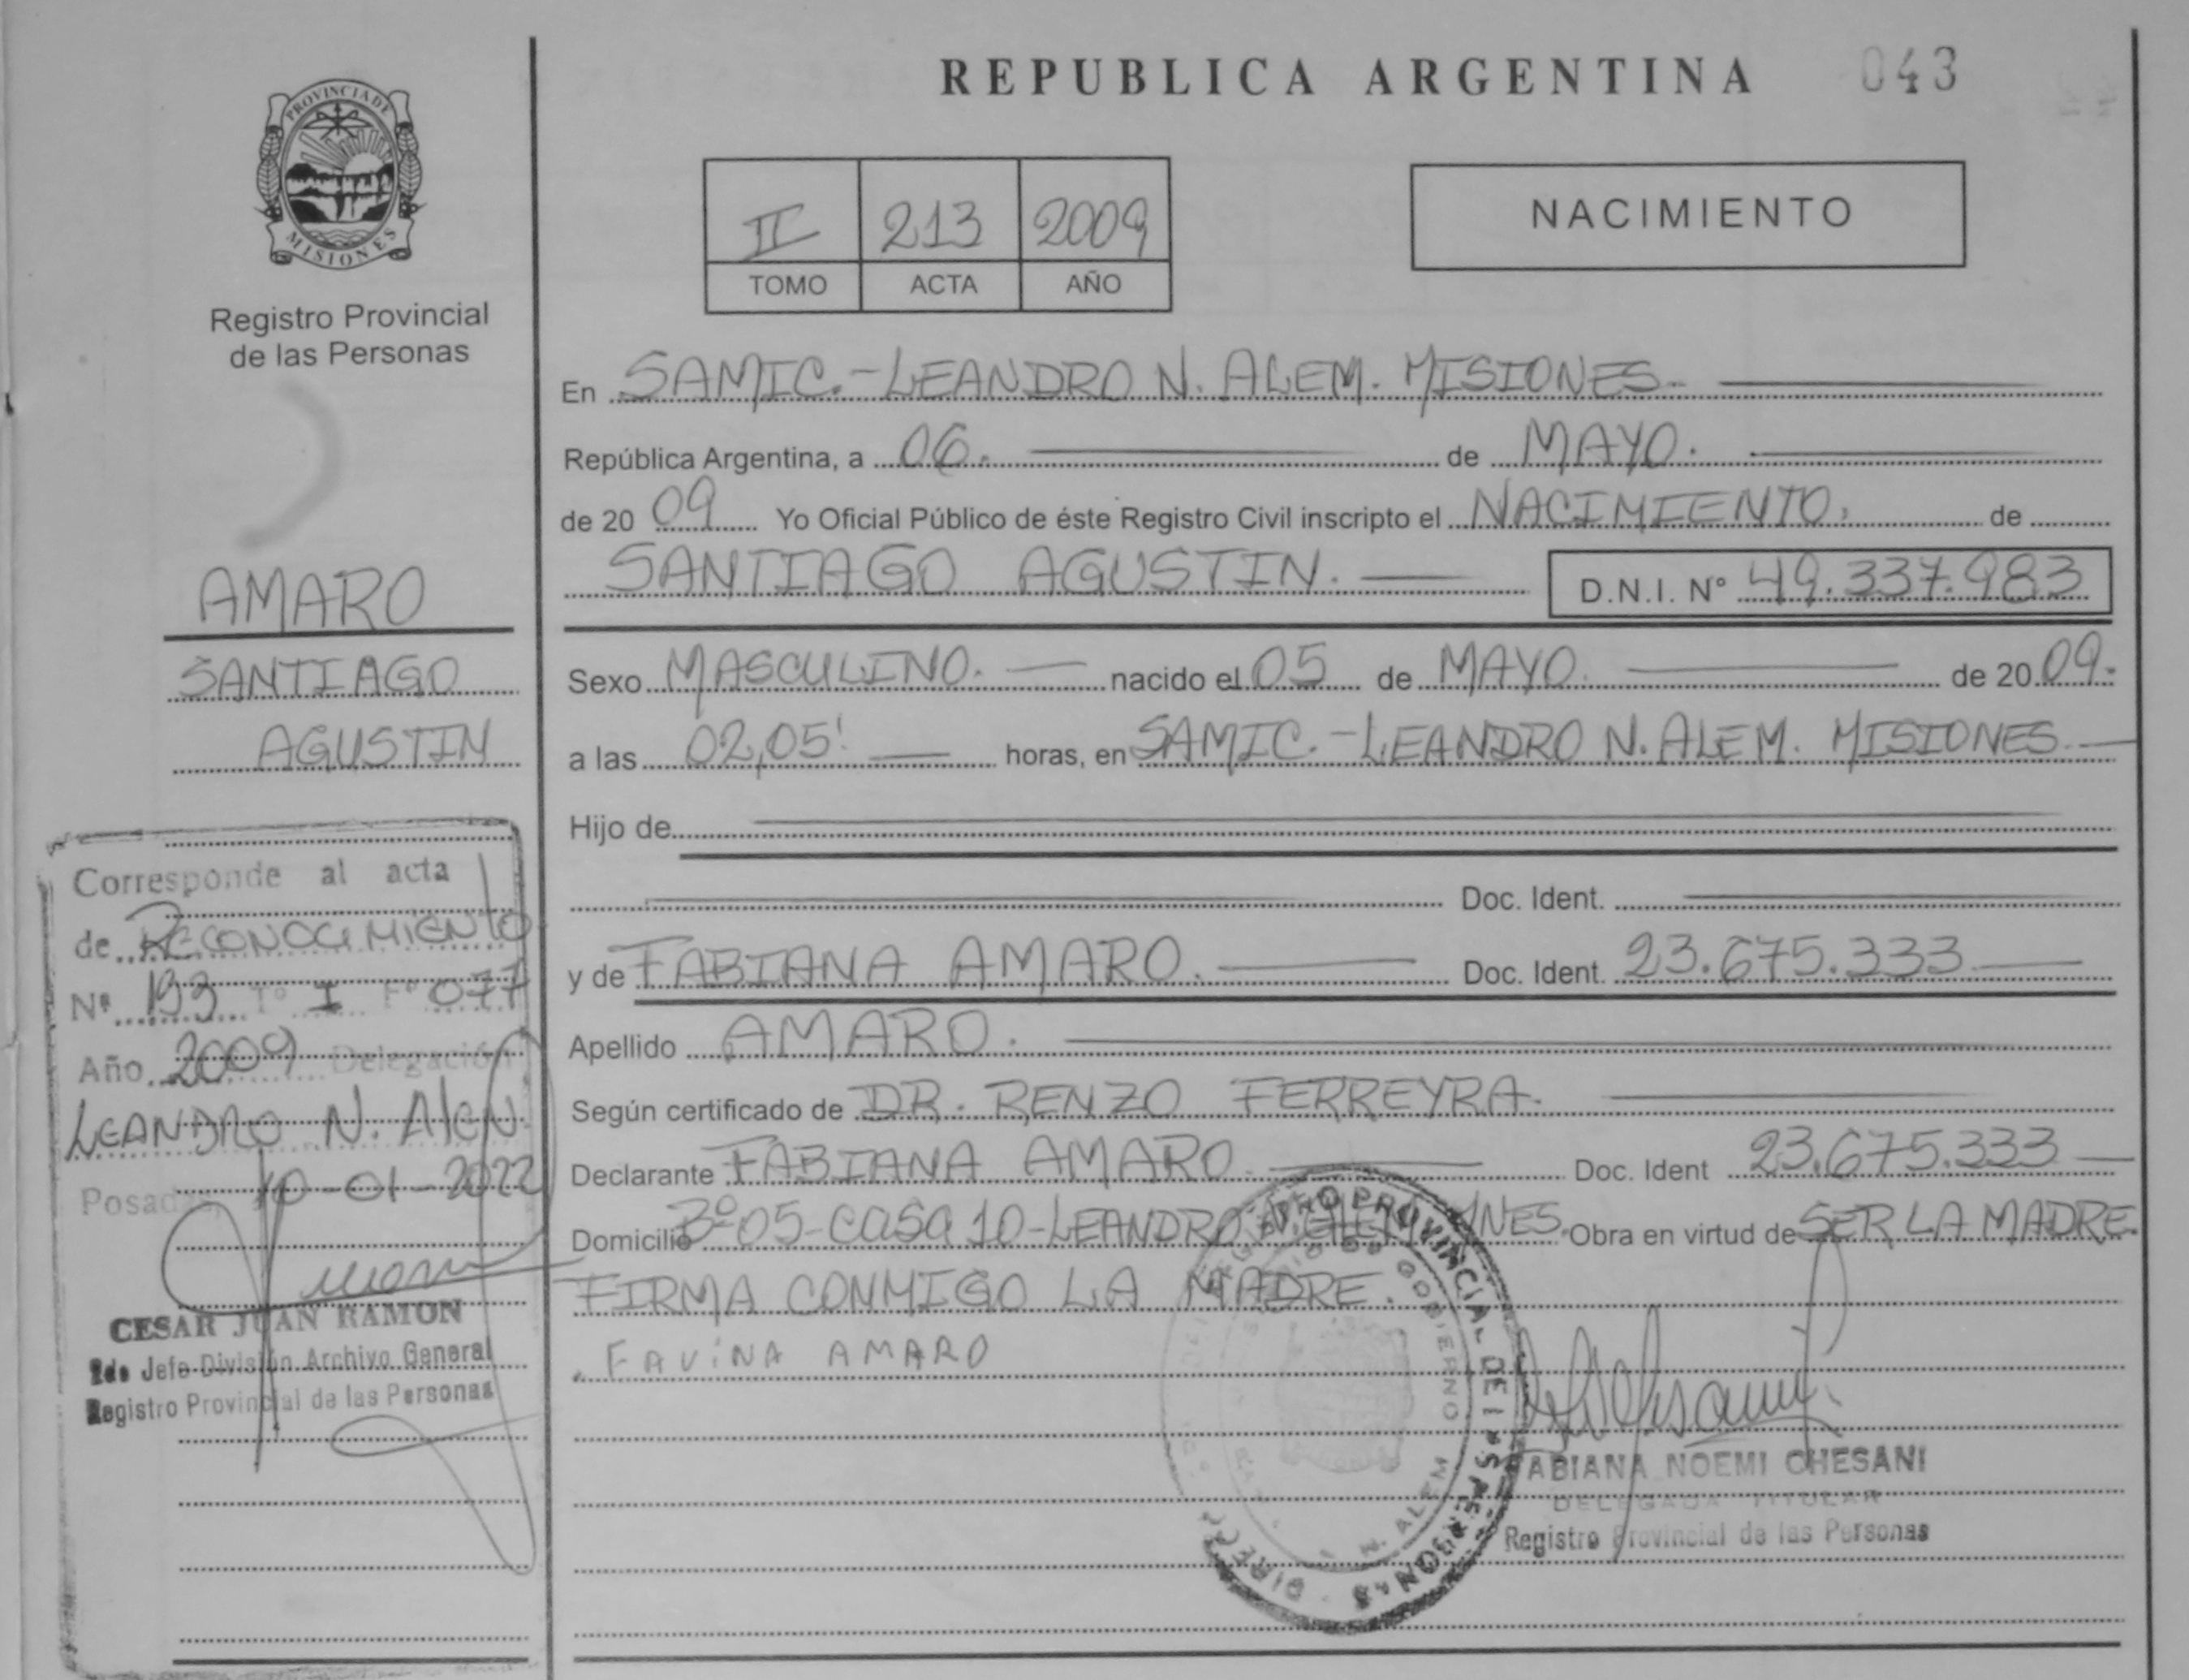 PROVINCIA DE
MISIONES
Registro Provincial
de las Personas
AMARO
SANTIAGO
AGUSTIN
Corresponde al acta
de RECONOCIMIENTO
Nº 193 Tº I Fº 077
Año 2009 Delegación
LEANDRO N. Alen
Posadas, 10-01-2022
CESAR JUAN RAMON
2do Jefe División Archivo General
Registro Provincial de las Personas
REPUBLICA ARGENTINA 043
II 213 2009
TOMO ACTA AÑO
NACIMIENTO
En SAMIC.-LEANDRO N. ALEM. MISIONES.
República Argentina, a 06. de MAYO.
de 20 09 Yo Oficial Público de éste Registro Civil inscripto el NACIMIENTO. de
SANTIAGO AGUSTIN. D.N.I. Nº 49.337.983
Sexo MASCULINO. nacido el 05 de MAYO. de 20 09.
a las 02,05' horas, en SAMIC.-LEANDRO N. ALEM. MISIONES.
Hijo de
Doc. Ident.
y de FABIANA AMARO. Doc. Ident. 23.675.333
Apellido AMARO.
Según certificado de DR. RENZO FERREYRA.
Declarante FABIANA AMARO. Doc. Ident 23.675.333
Domicilio Bº05-CASA 10-LEANDRO N. Obra en virtud de SER LA MADRE.
FIRMA CONMIGO LA MADRE.
FAViNA AMARO
PROVINCIAL DE LAS PERSONAS
GOBIERNO
N. ALEM
FABIANA NOEMI CHESANI
DELEGADA TITULAR
Registro Provincial de las Personas